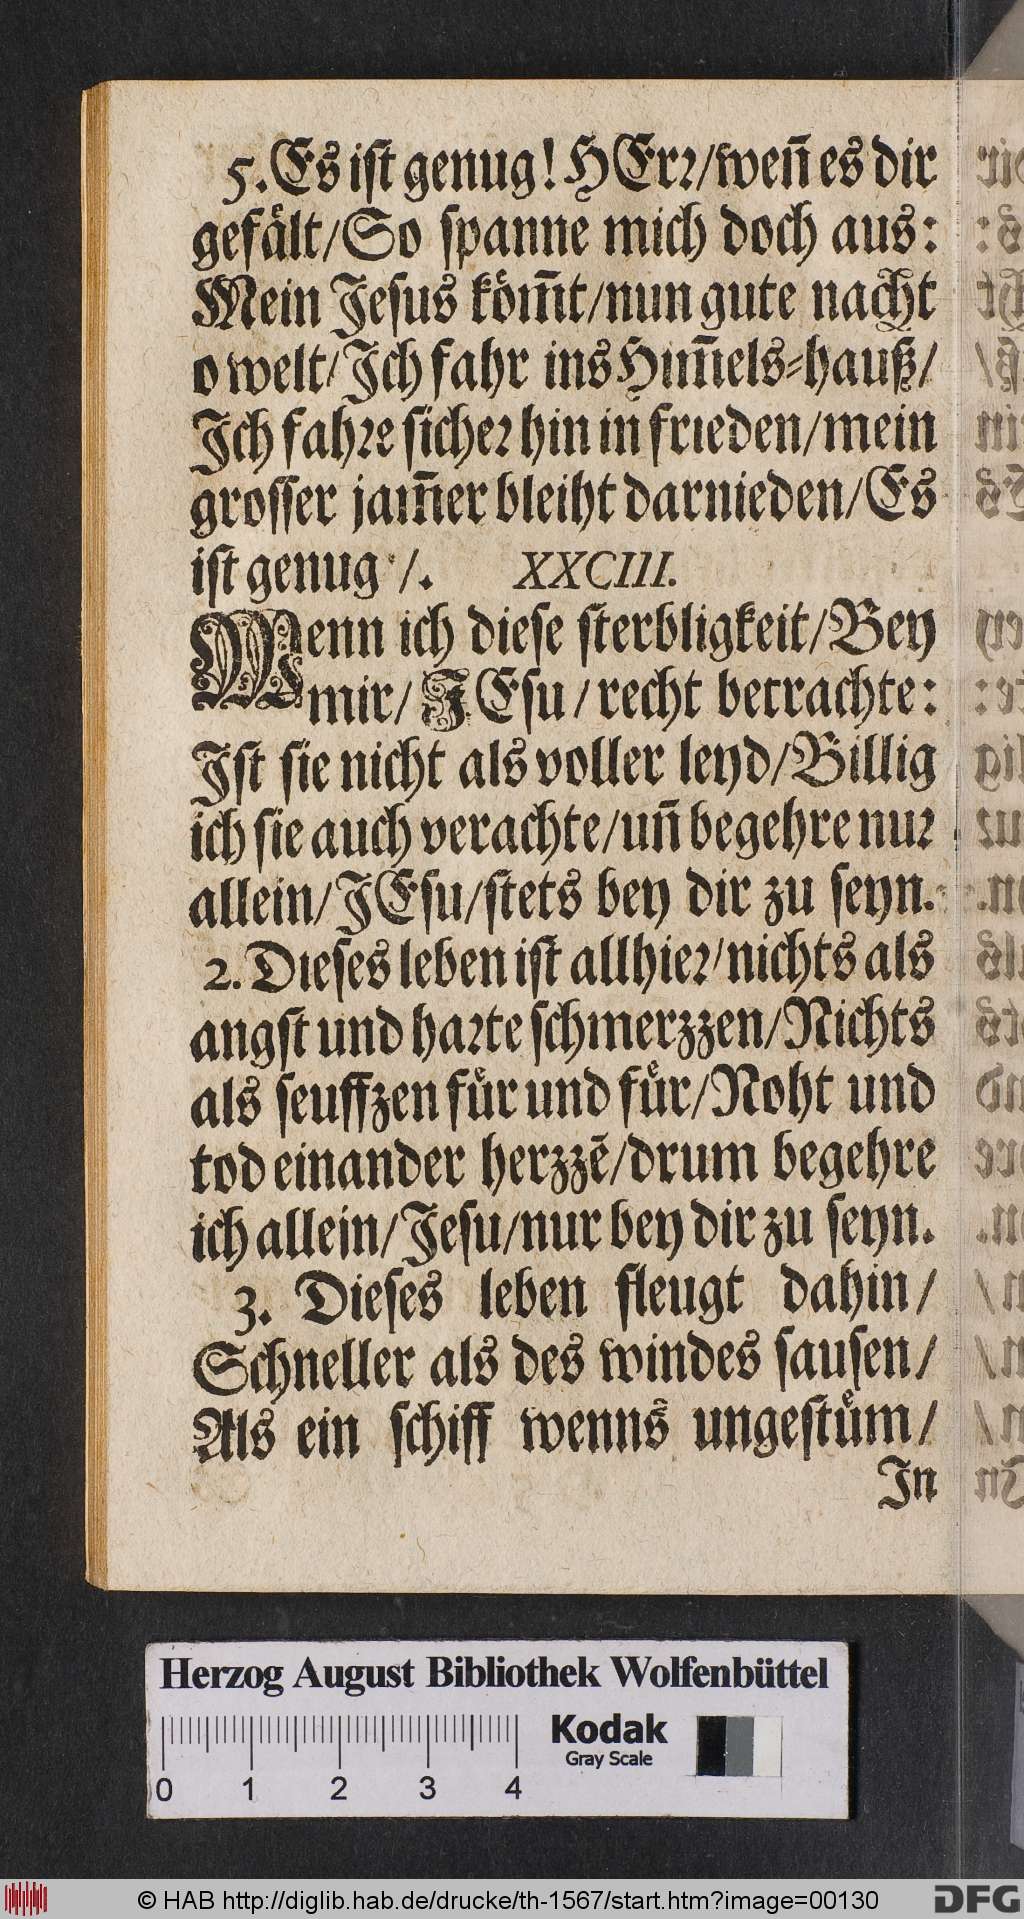 5. Es ist genug! HErr/weñ es dir
gefält/So spanne mich doch aus:
Mein Jesus köm̃t/nun gute nacht
o welt/Ich fahr ins Him̃els-hauß/
Ich fahre sicher hin in frieden/mein
grosser jam̃er bleiht darnieden/Es
ist genug /. XXCIII.
Wenn ich diese sterbligkeit/Bey
mir/ JEsu/recht betrachte:
Ist sie nicht als voller leyd/Billig
ich sie auch verachte/uñ begehre nur
allein/JEsu/stets bey dir zu seyn.
2. Dieses leben ist allhier/nichts als
angst und harte schmerzzen/Nichts
als seuffzen für und für/Noht und
tod einander herzzẽ/drum begehre
ich allein/Jesu/nur bey dir zu seyn.
3. Dieses leben fleugt dahin/
Schneller als des windes sausen/
Als ein schiff wenns̃ ungestüm/
In
Herzog August Bibliothek Wolfenbüttel
Kodak
Gray Scale
0 1 2 3 4
© HAB http://diglib.hab.de/drucke/th-1567/start.htm?image=00130
DFG